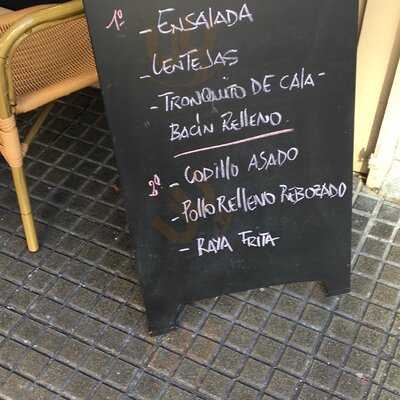 1º - ENSALADA
- LENTEJAS
- TRONQUITO DE CALA-
BACÍN RELLENO
2º - CODILLO ASADO
- POLLO RELLENO REBOZADO
- RAYA FRITA